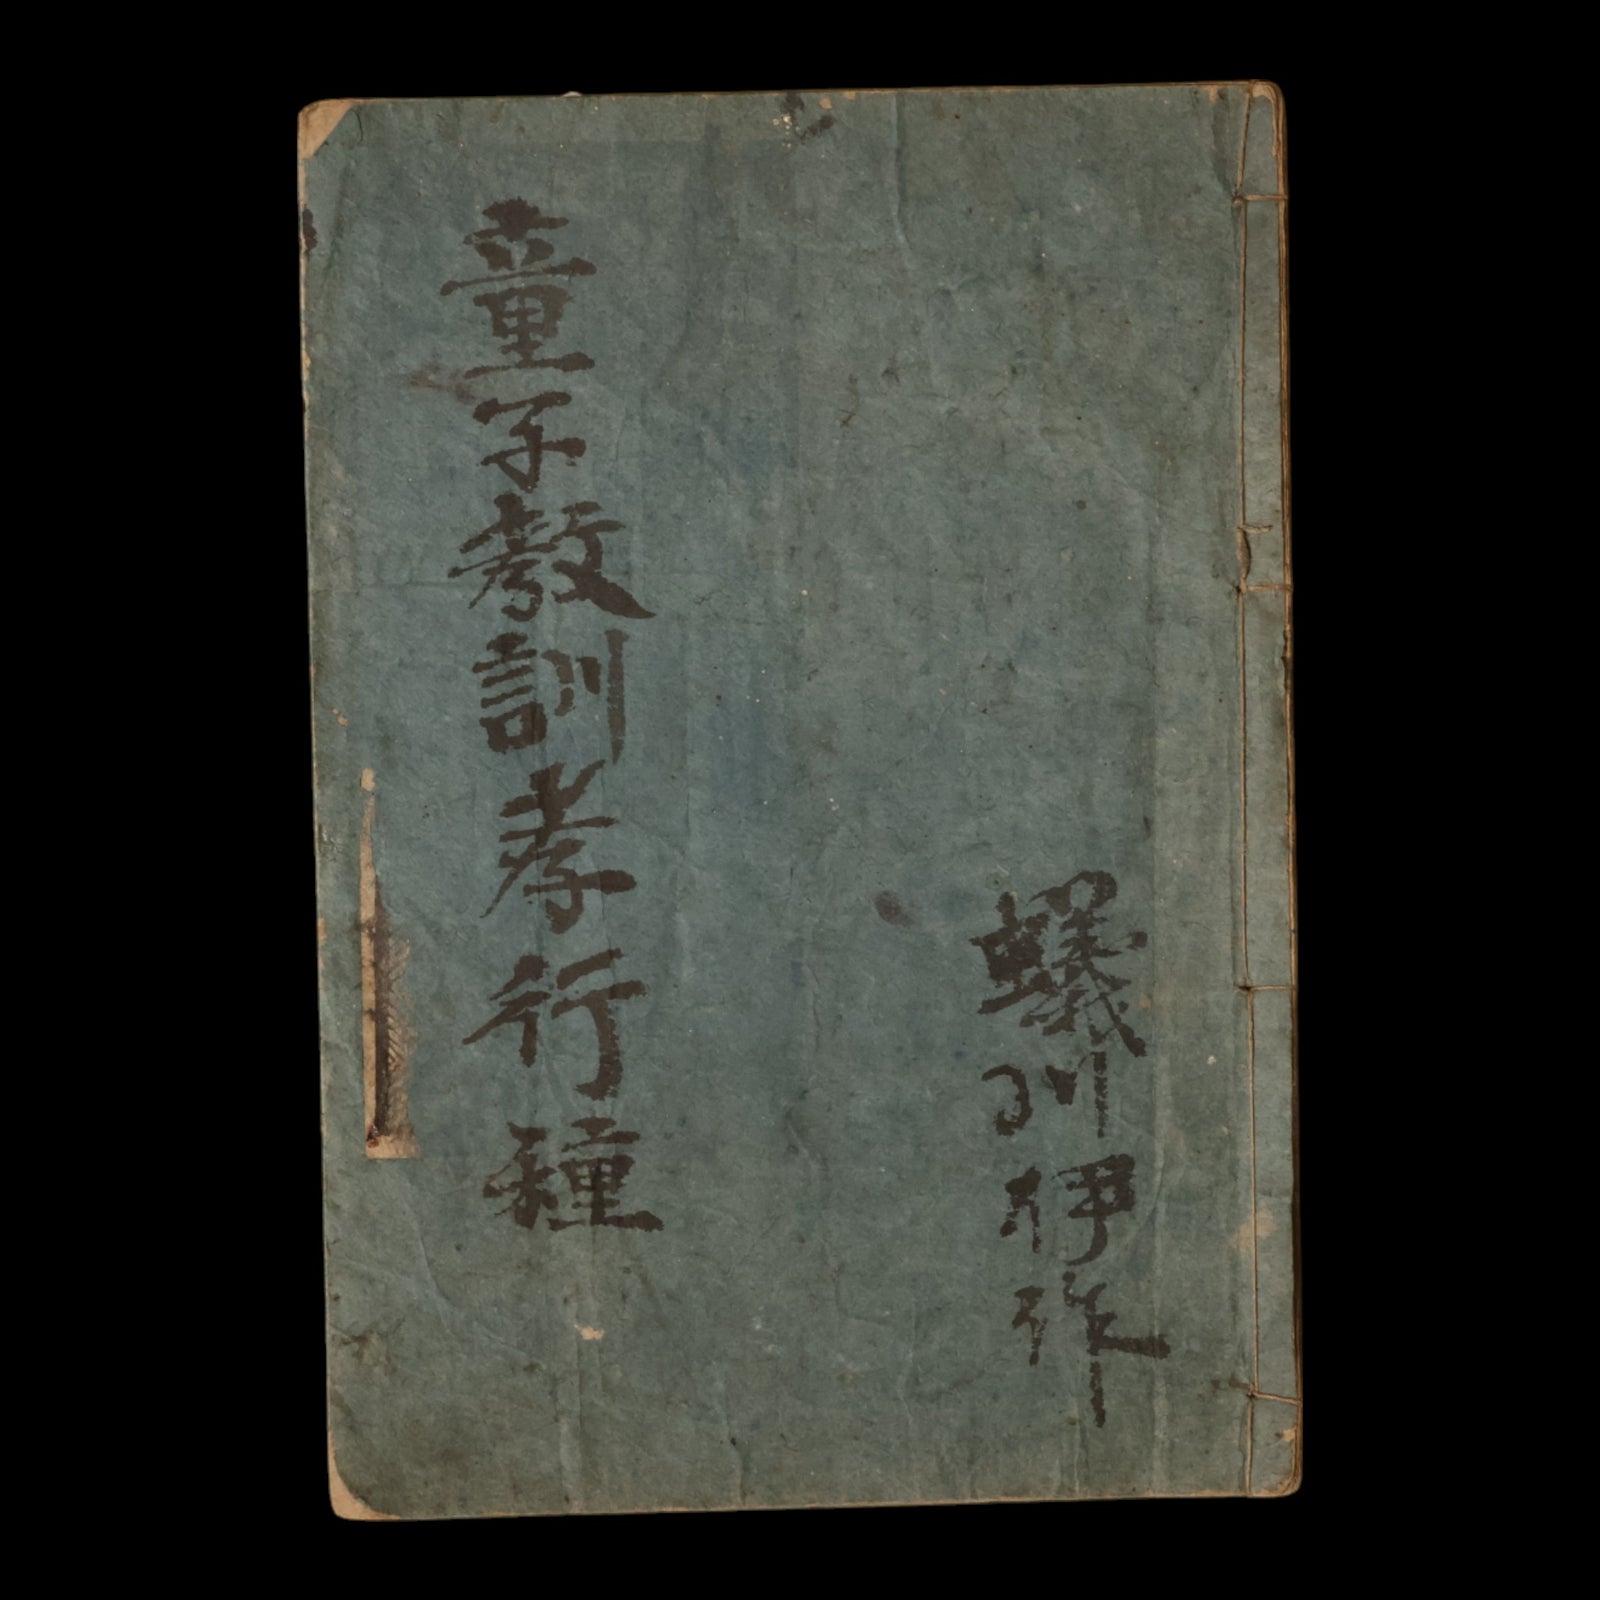 蟻川伊作
童子教訓孝行種